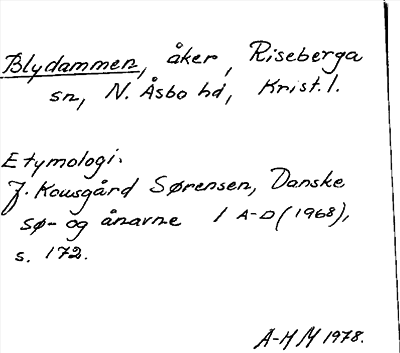 Blydammen, åker, Riseberga
sn, N. Åsbo hd, Krist. l.
Etymologi.
J. Kousgård Sørensen, Danske
sø- og ånavne 1 A-D (1968),
s. 172.
A-H M 1978.